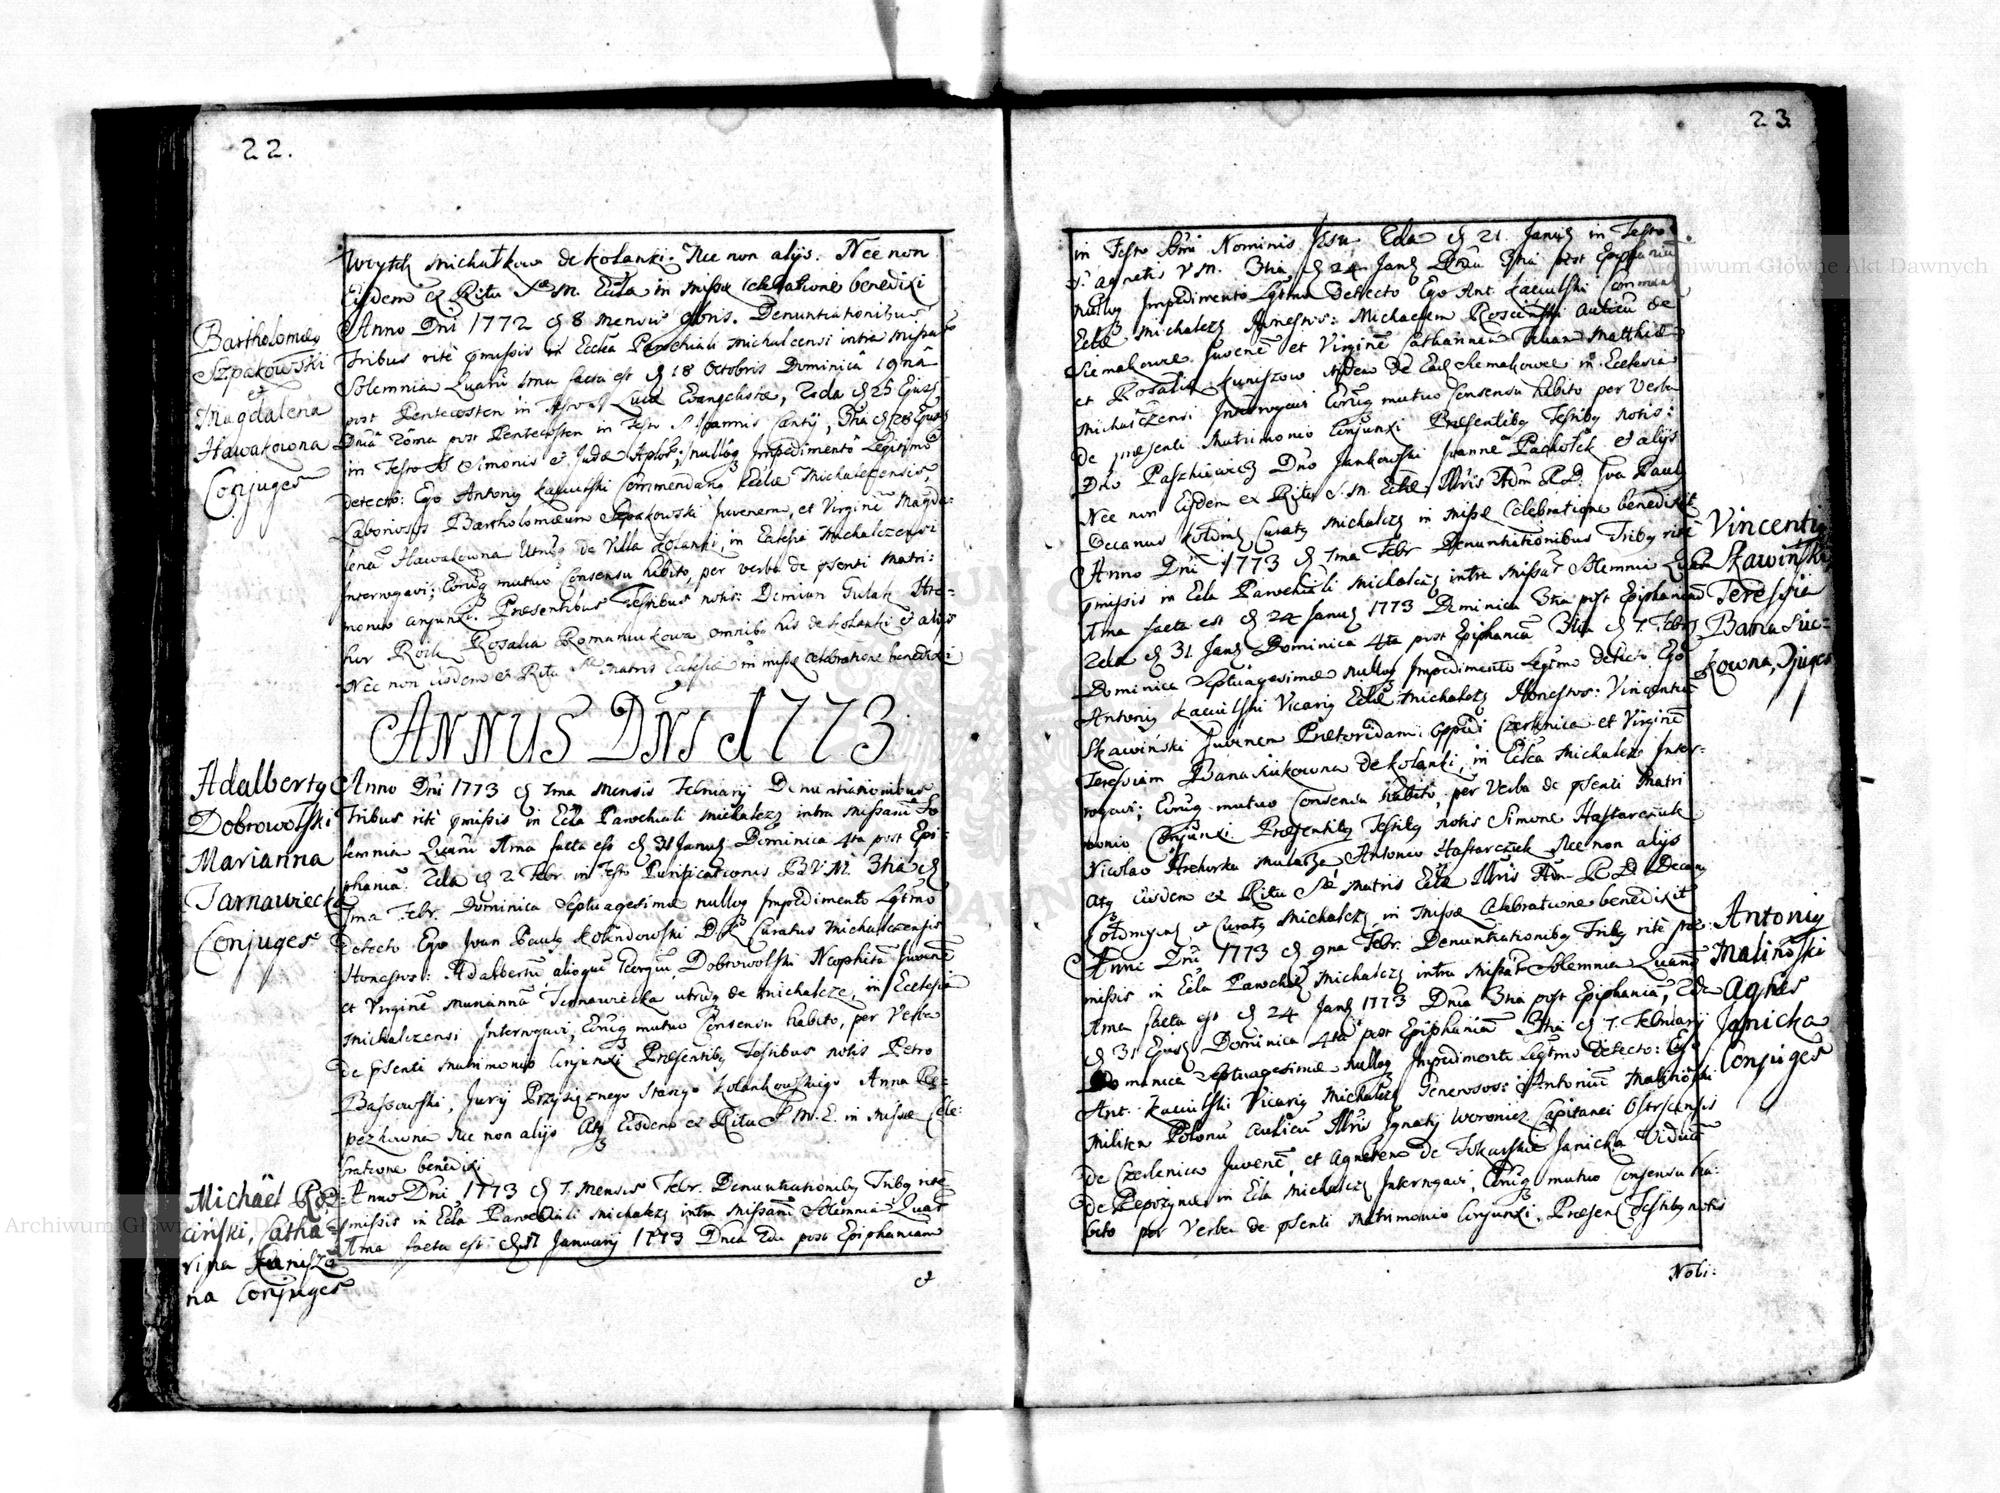 22.
Bartholomæg
Szpakowski
et
Magdalena
Hawakowna
Conjuges
Wrytch Michałkow de Kolanki. Nec non alijs. Nec non
Eijsdem ex Ritu S. M. Eccła in Missæ celebratione benedixi
Anno Dni 1772 d 8 Mensis 9bris. Denuntiationibus
Tribus ritè pmissis in Eccłia Parochiali Michalcensi intra Missar
Solemnia Quarū 1ma facta est d 18 Octobris Dominicâ 19nâ
post Pentecosten in Festo S Lucæ Evangelistæ, 2da d 25 Ejusd
Dnicâ 20ma post Pentecosten in Festo S. Joannis Cantij, 3tia d 28 Ejusd
in Festo SS Simonis et Judæ Aptor; nulloq Impedimentô Legitimô
detectô: Ego Antonij Commendarij Ecclæ Michalczensis,
Laboriosos Bartholomæum Szpakowski Juvenem, et Virginē Magda:
lenā Hawakowna Utrūq de Villa Kolanki, in Ecclesia Michalczensi
Interrogavi; Eorūq mutuo Consensu habito, per verba de psenti Matri:
monio conjunxi. Præsentibus Testibus notis: Demian Gulak Hre-
hor Roik Rosalia Romaniukowa omnibq his de Kolanki et alijs
Nec non eisdem ex Ritu S. Matris Ecclesiæ in missæ celebratione benedixi
ANNUS DNI 1773
Adalbertq
Dobrowolski
Marianna
Tarnawiecka
Conjuges
Anno Dni 1773 d 7ma Mensis Februarij Denuntiationibus
Tribus ritè pmissis in Eccła Parochiali Michalczs intra Missarū So
lemnia Quarū 1ma facta est d 31 Januarij Dominica 4ta post Epi:
phaniā. 2da d 2 Febr. in Festo Purificationis B.V.M. 3tia d
7ma Febr. Dominica Septuagesimæ nulloq Impedimento Lgtmo
detecto Ego Ioan Paulq Kolendowski D. K. Curatus Michalczensis
Honestos: Adalbertū alioqui Georgiū Dobrowolski Neophitā Juvenē
et Virginē Mariannā Tarnawiecka utrūq de Michalcze, in Ecclesia
Michalczensi Interrogavi, Eorūq mutuo Consensu habito, per Verba
de psenti Matrimonio Conjunxi Præsentibq Testibus notis Petro
Bassowski, Jurij Przysięznego Starego Kolankowskiego Anna
Nec non alijs Atq Eisdem ex Ritu S. M. E. in Missæ Cele:
bratione benedixi
Michaël Ros:
ciński, Catha
rina Kuniszo
na Conjuges
Anno Dni 1773 d 7. Mensis Febr. Denuntiationibq Tribq ritè
pmissis in Eccła Parochiali Michalczs intra Missarū Solemnia Quar
1ma facta est: d 17 Januarij 1773 Dnica 2da post Epiphaniam
et
23
in Festo Smi Nominis Jesu 2da d 21. Januarij in Festo
S. Agnetis V M. 3tia d 24. Januarij Dnica 3tia post Epiphaniā
nulloq Impedimento Lgtmo Detecto Ego Ant. Commen
Ecclæ Michalczs Honestos: Michaelem Rosciński Aulicū de
Siemakowce Juvenē et Virginē Catharinā Filiam Matthiæ
et Rosaliæ Kuniszow itidem De Ead Siemakowce in Ecclesia
Michalczensi Interrogavi Eorūq mutuo Consensu habito per Verba
de præsenti Matrimonio Conjunxi Præsentibq Testibq notis:
Dno Paszkiewicz Dno Jankowski Joanne Pachołek et alijs
Nec non Eisdem ex Ritu S. M. Ecclæ; Illris Adm R.D. Iva Paulq
Decanus Kołom, Curatq Michalczs in Missæ Celebratione benedixit
Vincentiq
Skawiński
Teressia
Banasiu-
kowna, Cjuges
Anno Dni 1773 d 7ma Febr. Denuntiationibus Tribq ritè
pmissis in Eccła Parochiali Michalczs intra Missar Solemnia Quar
1ma facta est d 24 Januarij 1773 Dominica 3tia post Epiphaniā
2da d 31. Januarij Dominica 4ta post Epiphaniā 3tia d 7. Febr
Dominica Septuagesimæ nulloq Impedimento Legtmo detecto Ego
Antonij Vicariq Ecclæ Michalczs Honestos: Vincentiū
Skawiński Juvenem Oppidi Czerlenica et Virginē
Teressiam Banasiukowna de Kolanki, in Eccła Michalczs Inter-
rogavi; Eorūq mutuo Consensu habito, per Verba de psenti Matri
monio Conjunxi. Præsentibq Testibq notis Simone Hastarczuk
Nicolao Hrehorka Antonio Hastarczuk Nec non alijs
Atq Eisdem ex Ritu Stæ Matris Ecclæ Illris Adm R D. Decang
Cołomyens et Curatq Michalczs in Missæ Celebratione benedixit
Antonij
Malinoski
Agnes
Janicka
Conjuges
Anni Dni 1773 d 9na Febr. Denuntiationibq Tribq ritè præ:
missis in Eccła Parochiali Michalczs intra Missar Solemnia Quarū
1ma facta est d 24 Januarij 1773 Dnica 3tia post Epiphaniā, 2da
d 31 Ejusd Dominica 4ta post Epiphaniā 3tia d 7. Februarij
Dominica Septuagesimæ nulloq Impedimento Legtmo detecto: Ego
Ant. Vicariq Michalczs Generosos: Antoniū Malinoski
Militem Polonū Aulicū Illris Ignatij Woronicz Capitanei Ostrscensis
de Czerlenica Juvenē, et Agnetem de Tokarskie Janicka Viduā
de in Eccła Michalczs Interrogavi, Eorūq mutuo Consensu ha:
bito per Verba de psenti Matrimonio Conjunxi. Præsen Testibq notis
Nobi: